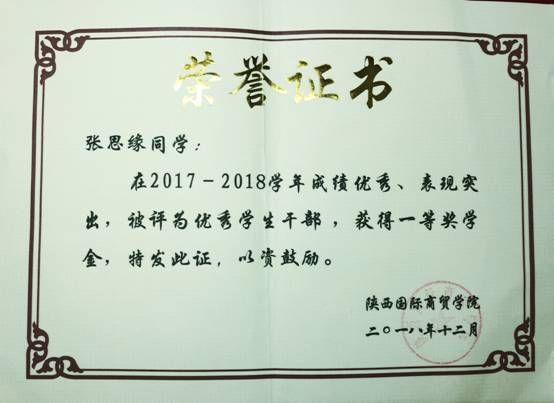 荣誉证书
张思缘同学：
在2017－2018学年成绩优秀、表现突
出，被评为优秀学生干部，获得一等奖学
金，特发此证，以资鼓励。
陕西国际商贸学院
二〇一八年十二月